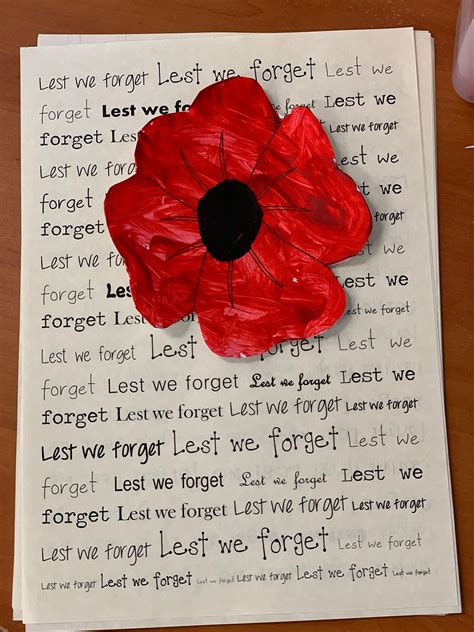 Lest we forget Lest we forget Lest we
forget Lest we forget Lest we
forget Lest we
Lest we forget
forget
forget
Lest we
forget Lest
forget Lest we
Lest we forget Lest we forget Lest we
forget Lest we forget Lest we forget Lest we
forget Lest we forget Lest we forget Lest we forget
Lest we forget Lest we forget Lest we
forget Lest we forget Lest we forget Lest we
forget Lest we forget Lest we forget Lest we forget
Lest we forget Lest we forget Lest we forget
Lest we forget Lest we forget Lest we forget Lest we forget Lest we forget Lest we forget